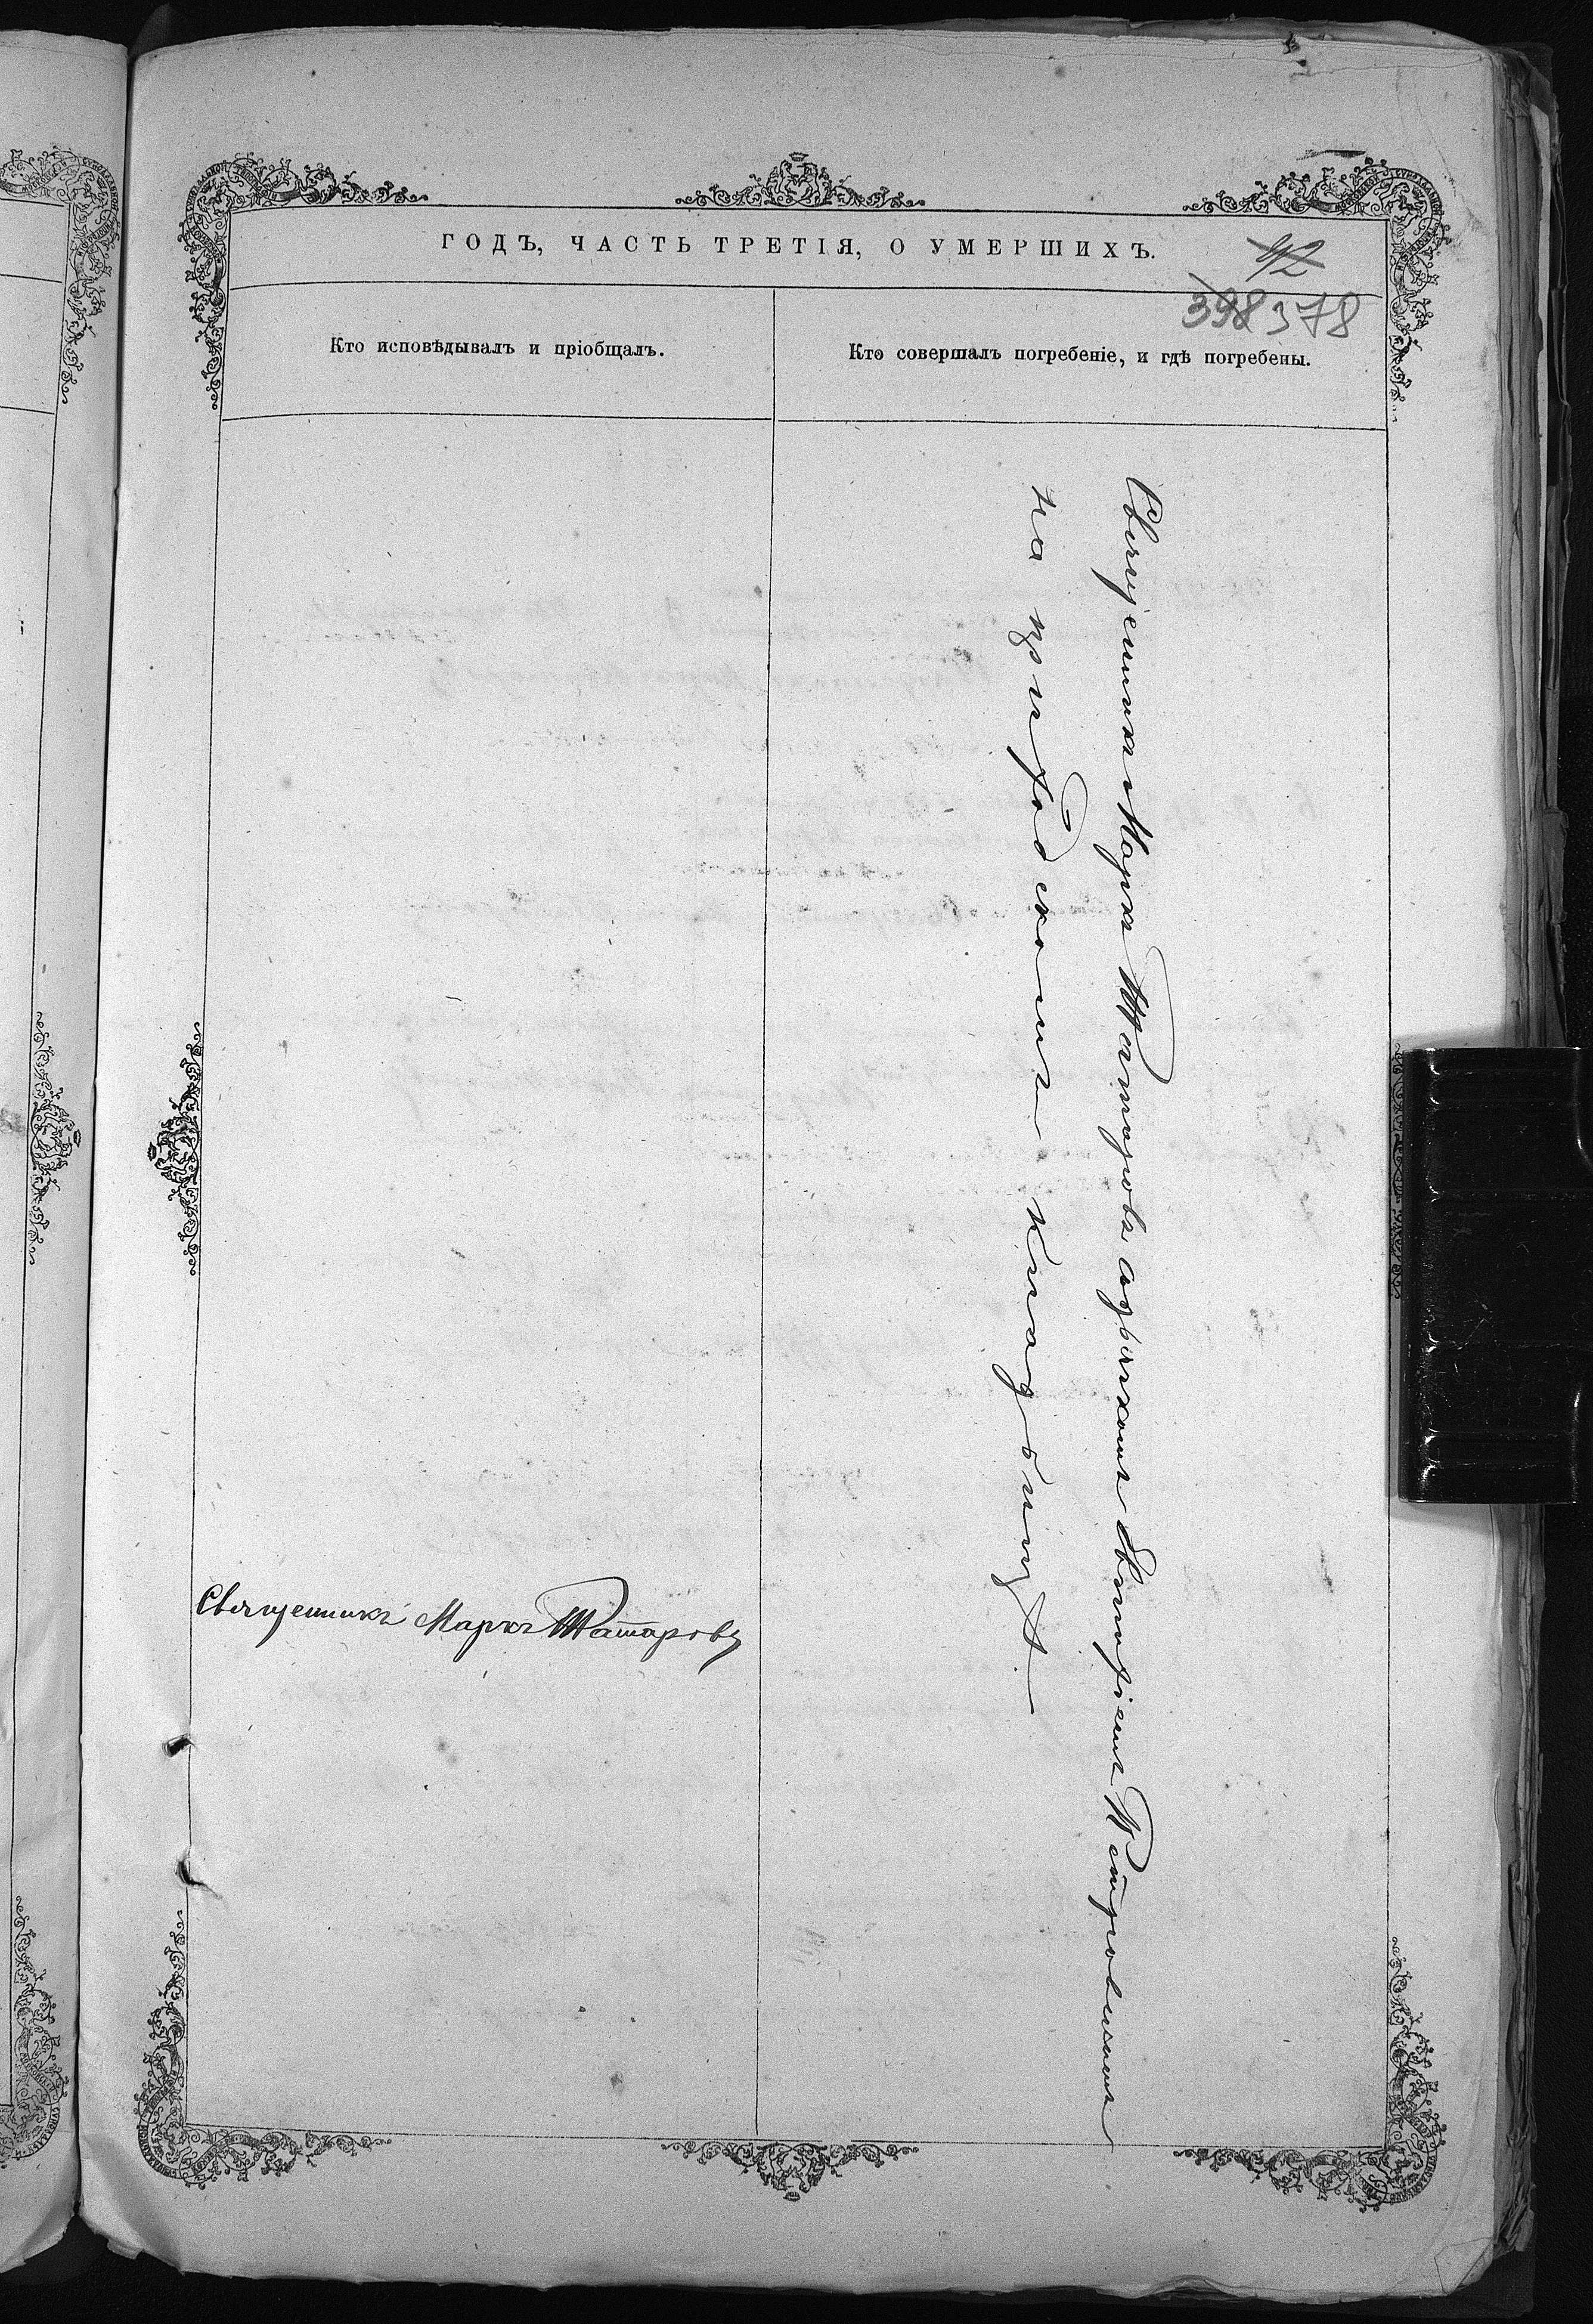 ГОДЪ, ЧАСТЬ ТРЕТІЯ, О УМЕРШИХЪ.
42
398 378
Кто исповѣдывалъ и пріобщалъ.
Кто совершалъ погребеніе, и гдѣ погребены.
Священникъ Маркъ Татаровъ
Священникъ Маркъ Татаровъ съ дьякомъ Евтихіемъ Петровымъ
на приходскомъ кладбищѣ